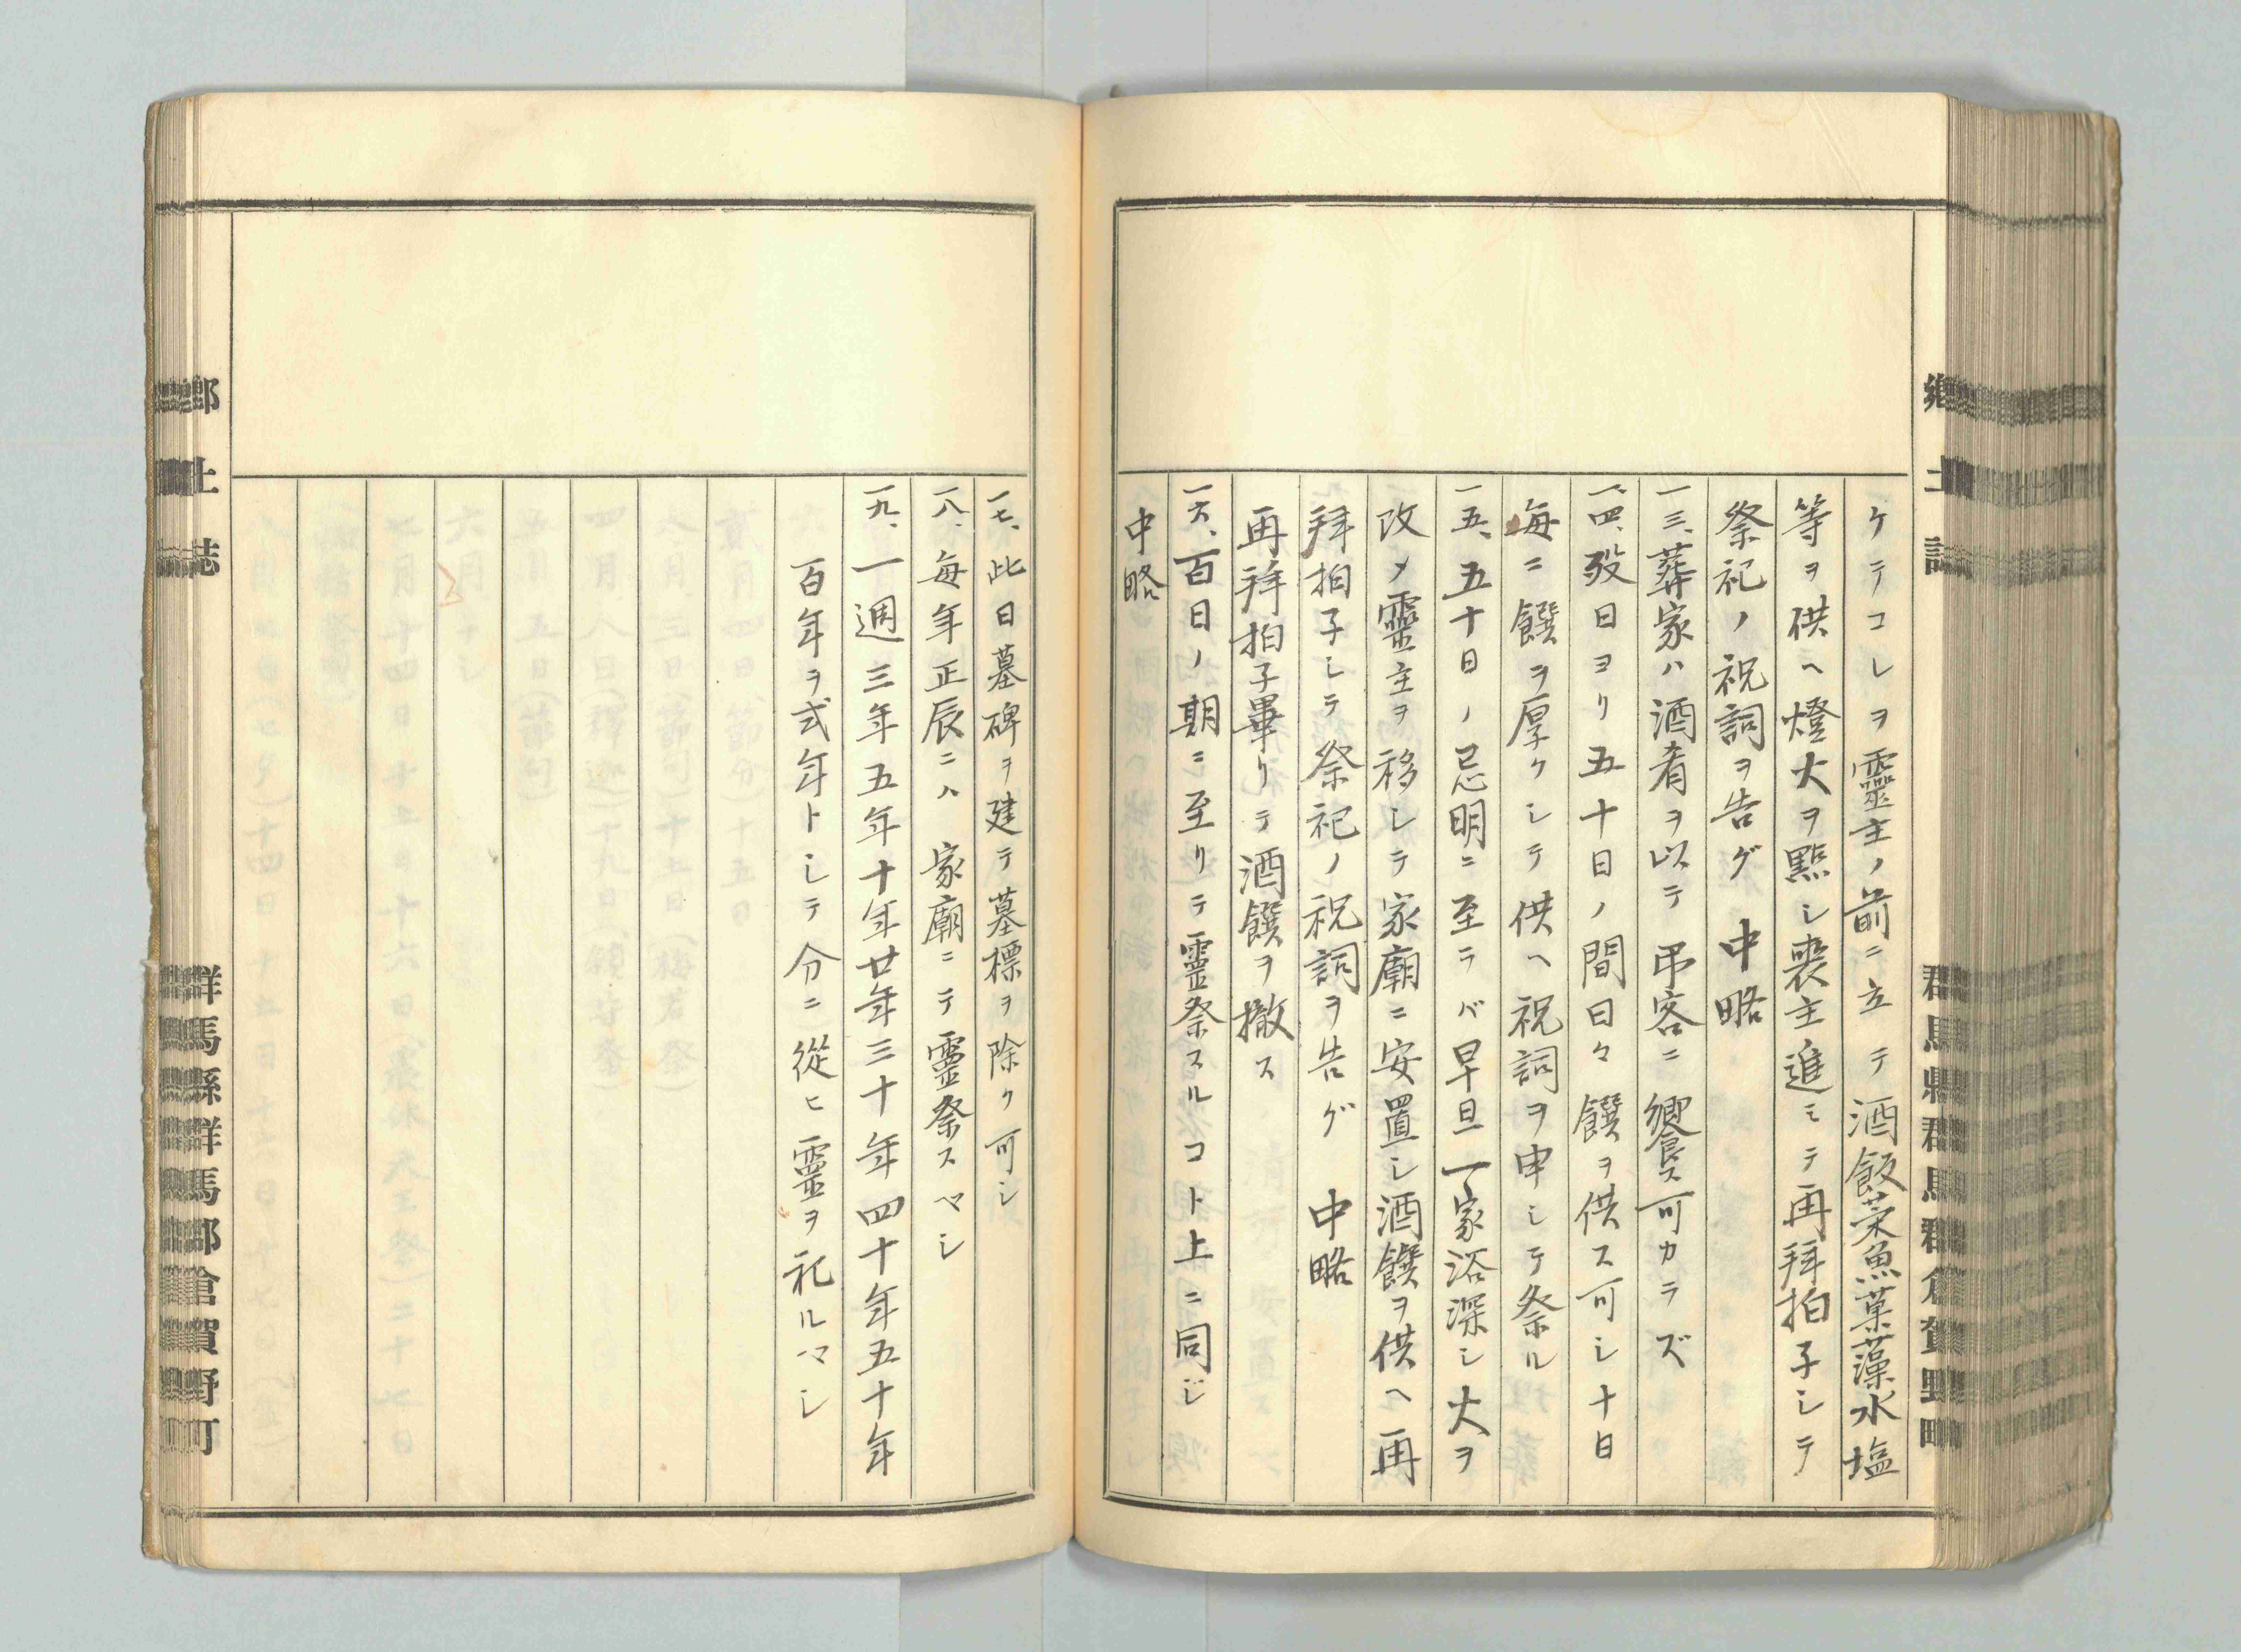 ケテコレヲ靈主ノ前ニ立テ酒飯菜魚菓藻水塩
等ヲ供ヘ燈火ヲ點シ喪主進ミテ再拜拍子シテ
祭祀ノ祝詞ヲ告グ　中略
一三、葬家ハ酒肴ヲ以テ弔客ニ饗ス可カラズ
一四、歿日ヨリ五十日ノ間日々饌ヲ供ス可シ十日
毎ニ饌ヲ厚クシテ供ヘ祝詞ヲ申シテ祭ル
一五、五十日ノ忌明ニ至ラバ早旦一家浴深シ火ヲ
改メ靈主ヲ移シテ家廟ニ安置シ酒饌ヲ供ヘ再
拜拍子シテ祭祀ノ祝詞ヲ告グ　中略
再拜拍子畢リテ酒饌ヲ撤ス
一六、百日ノ期ニ至リテ靈祭スルコト上ニ同ジ
中略
一七、此日墓碑ヲ建テ墓標ヲ除ク可シ
一八、毎年正辰ニハ家廟ニテ靈祭スマシ
一九、一週三年五年十年廿年三十年四十年五十年
百年ヲ式年トシテ分ニ從ヒ靈ヲ祀ルマシ
郷土誌
群馬縣群馬郡倉賀野町